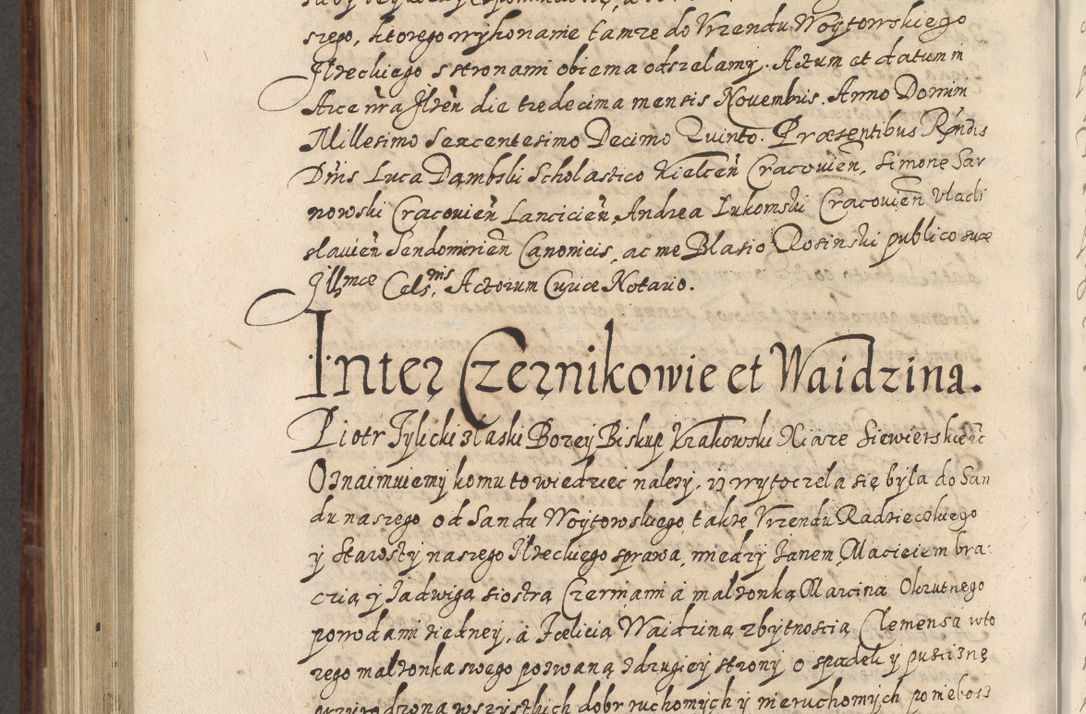 szego, ktorego wykonanie tamze do Vrzendu Woytowskiego
Jlzeckiego s stronami obiema odszelamy. Actum et datum in
Arce n̄ra Jlzen̄ die tredecima mensis Novembris. Anno Domini
Millesimo Sexcentesimo Decimo Quinto. Præsentibus Rn̄dis
Dn̄is Luca Dąmbski Scholastico Kielcen̄ Cracovien̄, Simone Sar
nowski Cracovien̄ Lancicien̄, Andrea Lukomski Cracovien̄ Vladi
slavien̄ Sendomirien̄ Canonicis, ac me Blasio Rosinski publico suæ
Jllmæ Cels.nis Actorum Curiæ Notario.
Inter Czernikowie et Waidzina.
Piotr Tylicki z łaski Bozey Biskup Krakowski Xiąze Siewierskie etc
Oznaimuiemy komu to wiedziec nalezy, iz wytoczela się była do San
du naszego od Sandu Woytowskiego takze Vrzendu Radzieczkiego
y Starosty naszego Jlzeckiego sprawa, miedzy Janem, Macieiem bra
cią y Jadwigą siostrą Czerniami a małzonką Marcina Okrutnego
powodami z iedney, a Felicią Waidziną z bytnoscią Clemensa wto
rego małzonka swego pozwaną z drugiey strony o spadek y pusciznę
przyrodzoną wszystkich dobr ruchomych y nieruchomych po niebosz